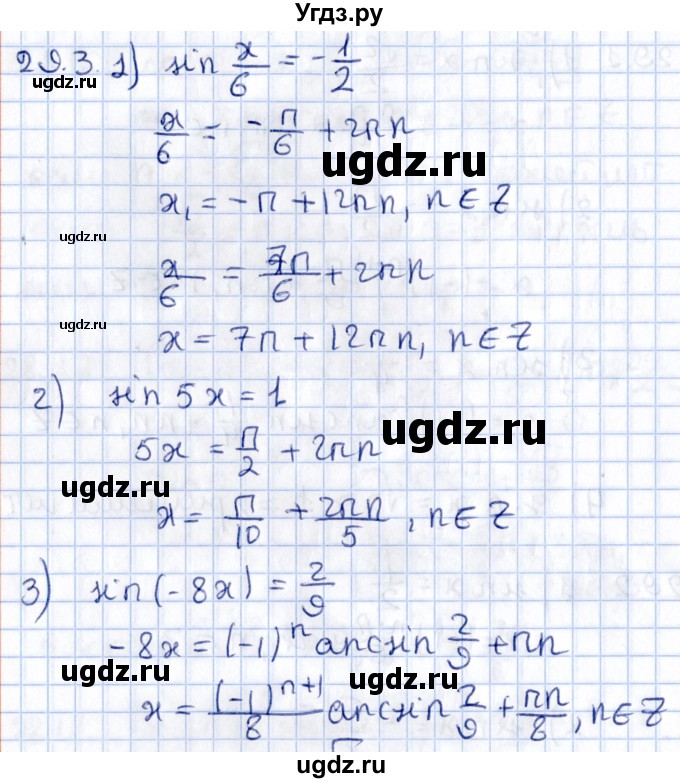 Угдз.ру
29.3. 1) sin x/6 = -1/2
ugdz.ru
x/6 = -π/6 + 2πn
ugdz.ru
x₁ = -π + 12πn, n ∈ Z
ugdz.ru
x/6 = 7π/6 + 2πn
ugdz.ru
x = 7π + 12πn, n ∈ Z
2) sin 5x = 1
5x = π/2 + 2πn
ugdz.ru
ugdz.ru
x = π/10 + 2πn/5, n ∈ Z
3) sin(-8x) = 2/9
-8x = (-1)ⁿ arcsin 2/9 + πn
ugdz.ru
ugdz.ru
x = (-1)ⁿ⁺¹/8 arcsin 2/9 + πn/8, n ∈ Z